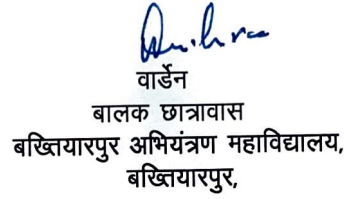 वार्डेन
बालक छात्रावास
बख्तियारपुर अभियंत्रण महाविद्यालय,
बख्तियारपुर,